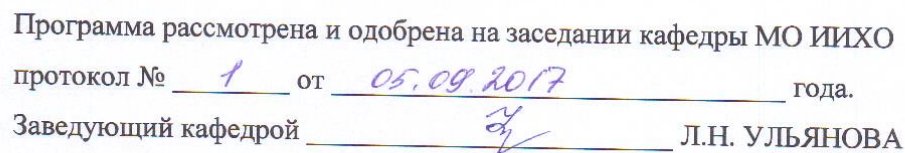 Программа рассмотрена и одобрена на заседании кафедры МО ИИХО
протокол № 1 от 05.09.2017 года.
Заведующий кафедрой Л.Н. УЛЬЯНОВА